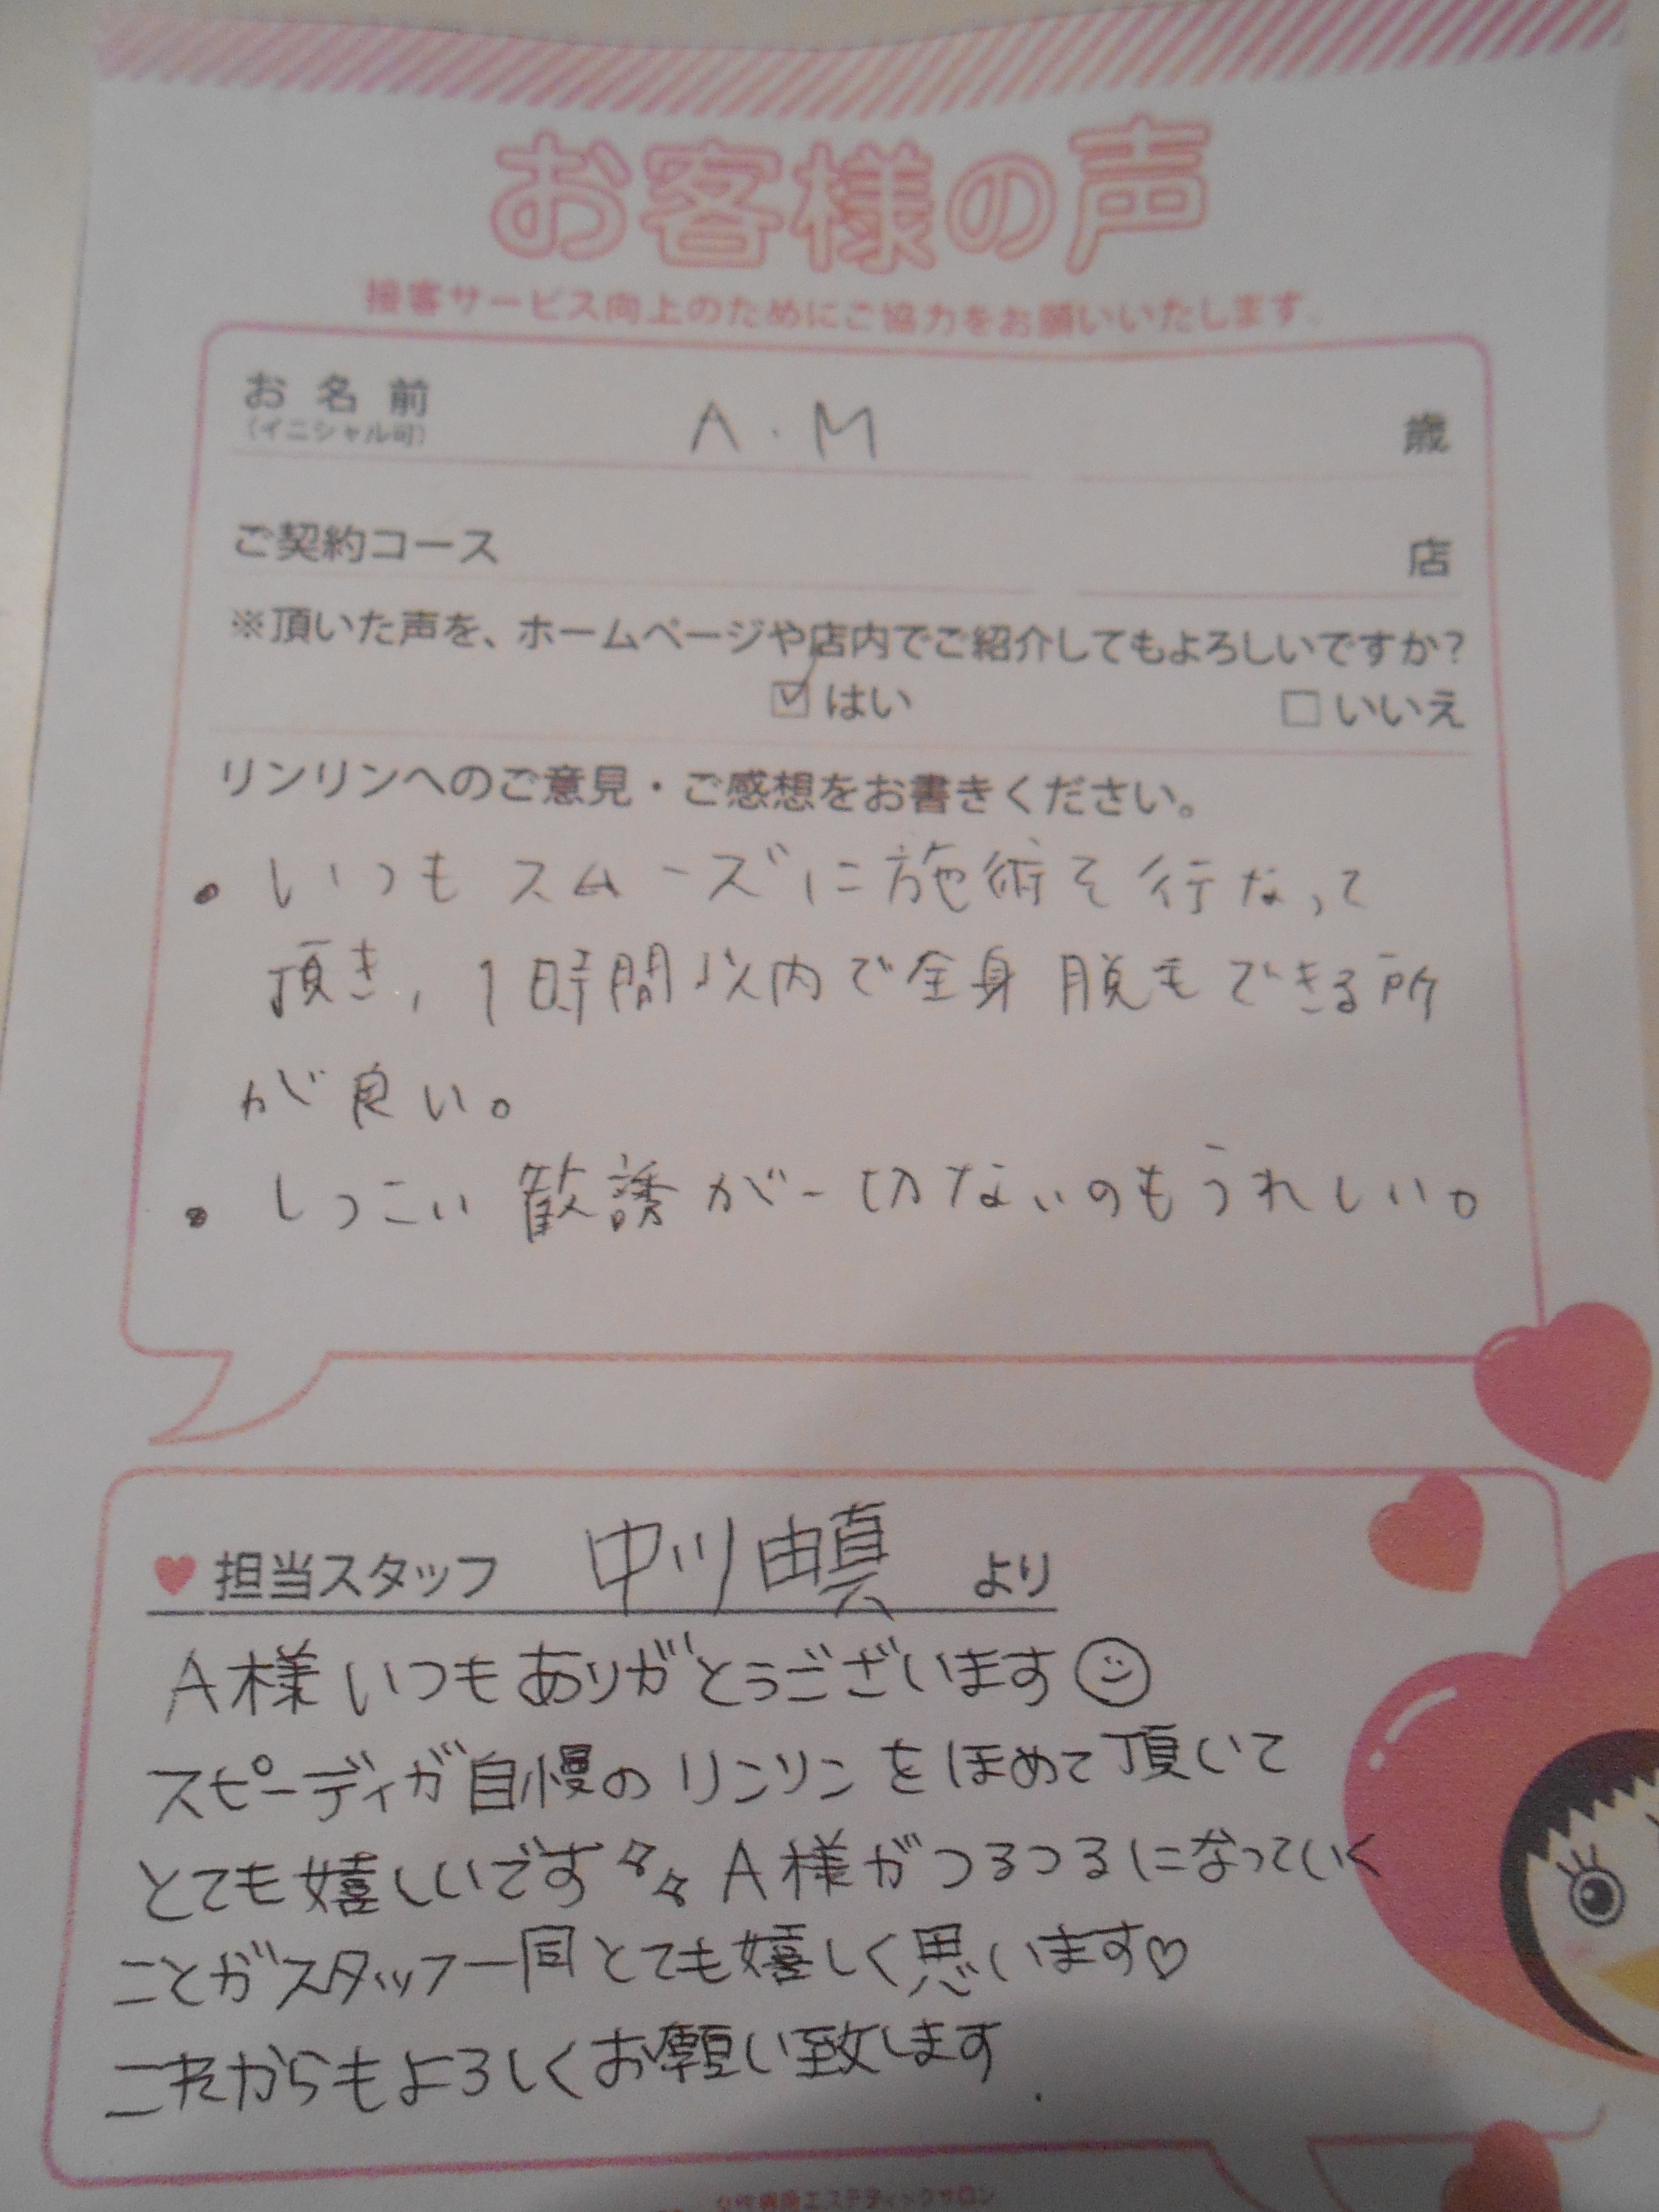 お客様の声
接客サービス向上のためにご協力をお願いいたします。
お名前 A・M 歳
(イニシャル可)
ご契約コース 店
※頂いた声を、ホームページや店内でご紹介してもよろしいですか?
☑はい □いいえ
リンリンへのご意見・ご感想をお書きください。
・いつもスムーズに施術を行なって
頂き、1時間以内で全身脱毛できる所
が良い。
・しつこい歓誘が一切ないのもうれしい。
♥担当スタッフ 中川 より
A様いつもありがとうございます☺
スピーディが自慢のリンリンをほめて頂いて
とても嬉しいです A様がつるつるになっていく
ことがスタッフ一同とても嬉しく思います♡
これからもよろしくお願い致します
女性専用エステティックサロン